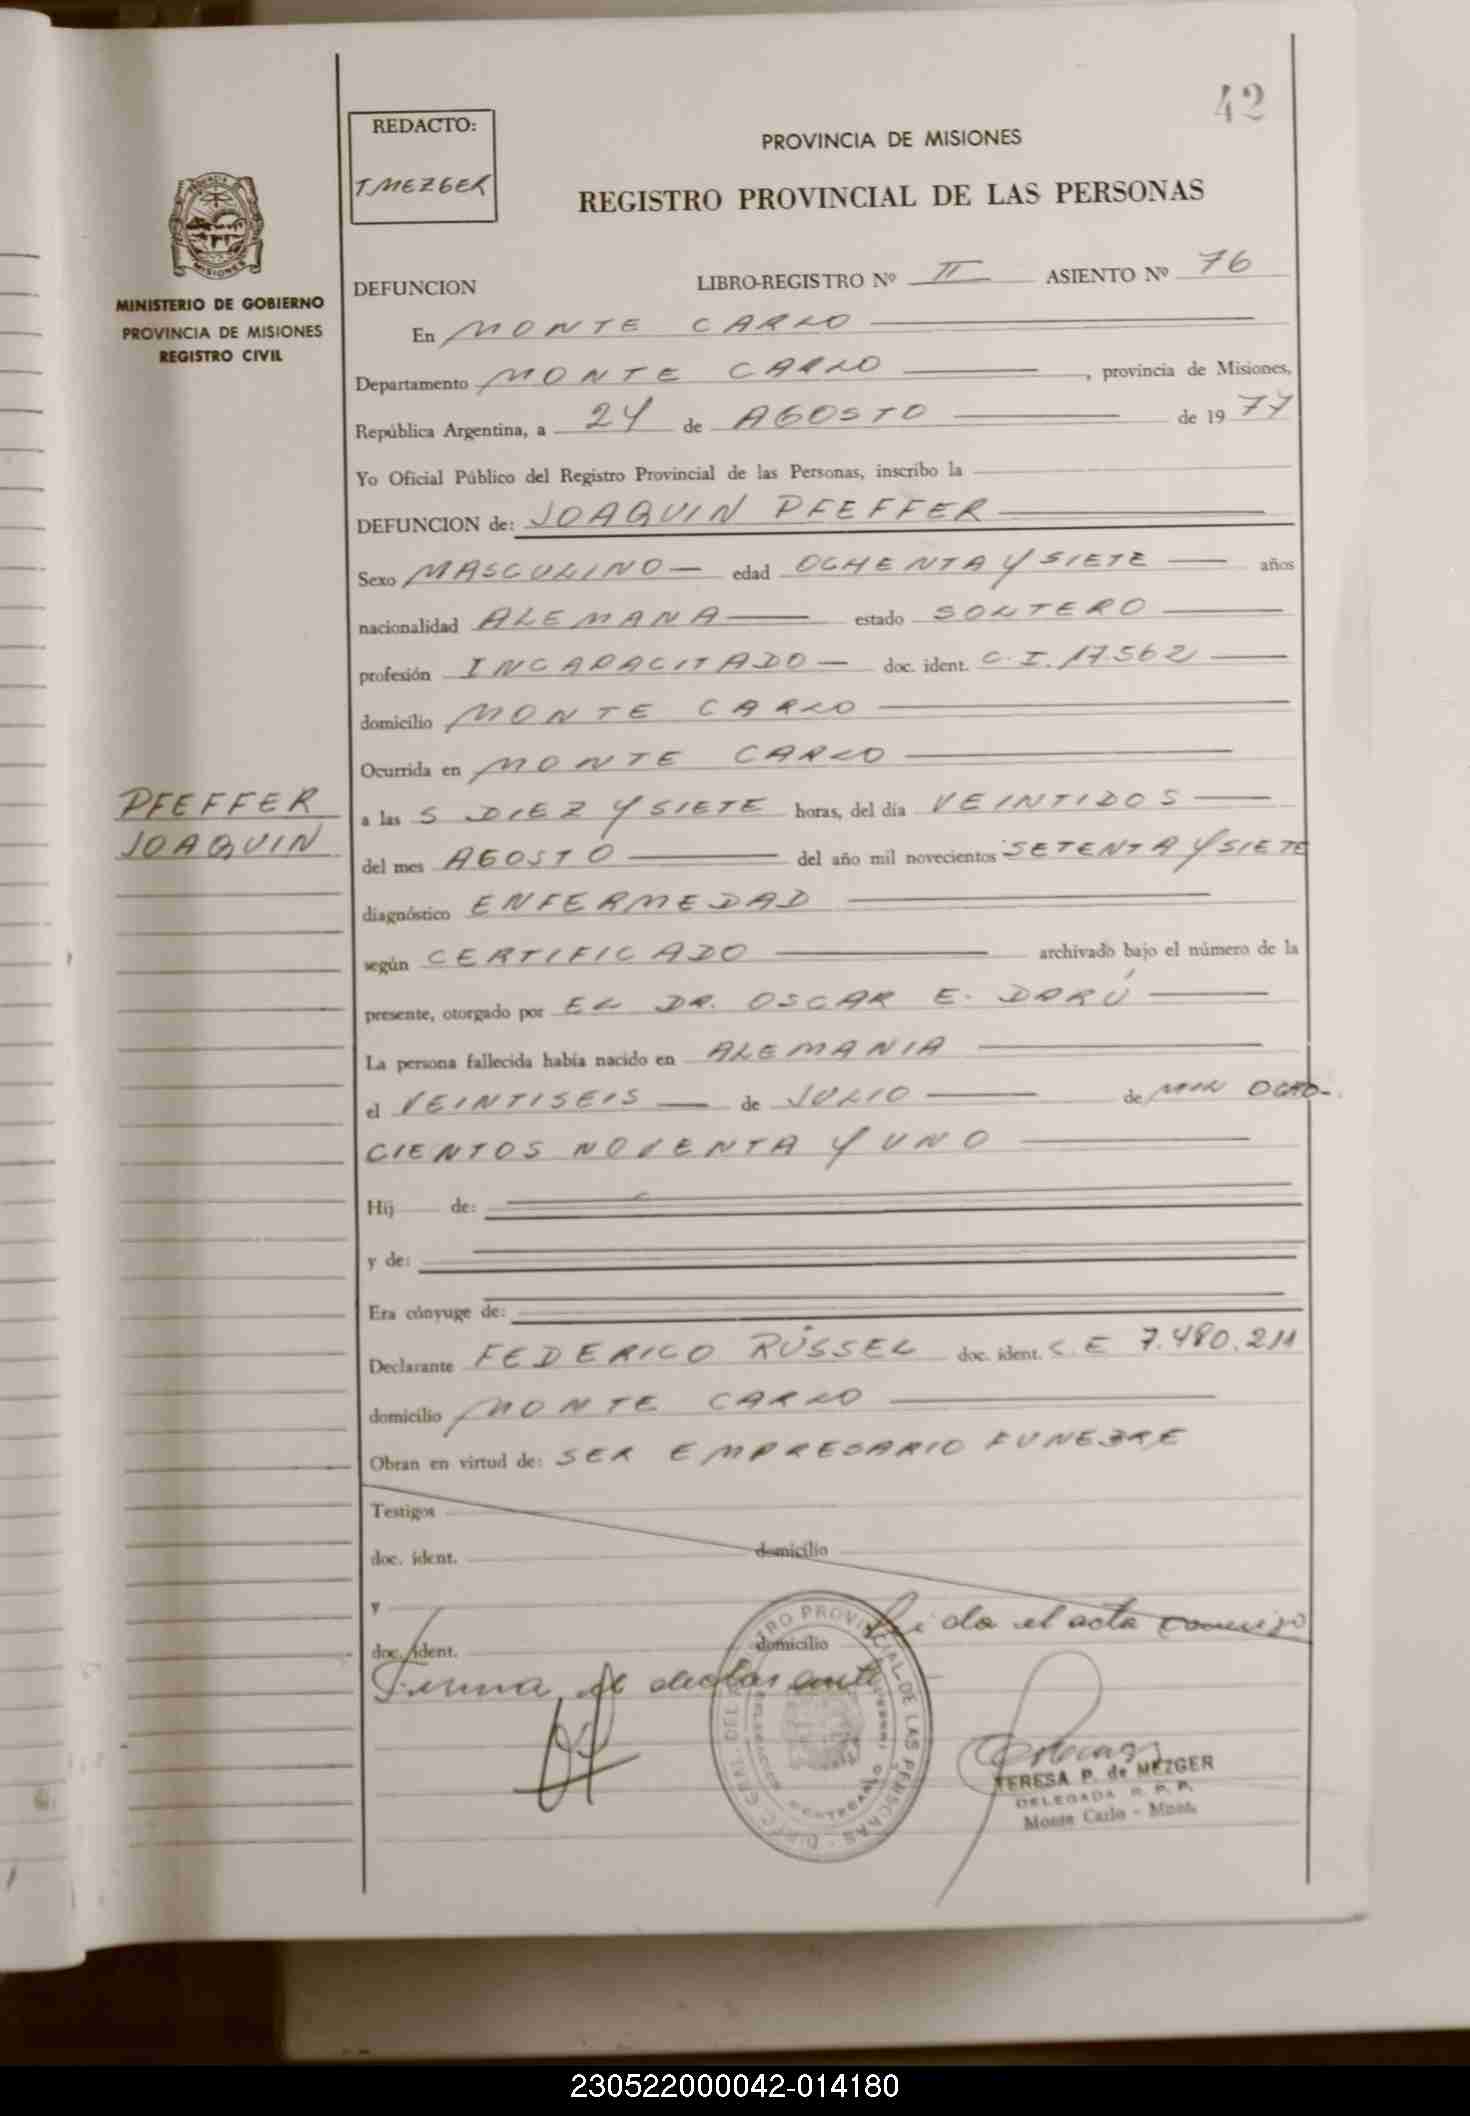 42
REDACTO:
T. MEZGER
PROVINCIA DE MISIONES
REGISTRO PROVINCIAL DE LAS PERSONAS
MINISTERIO DE GOBIERNO
PROVINCIA DE MISIONES
REGISTRO CIVIL
DEFUNCION LIBRO-REGISTRO Nº II ASIENTO Nº 76
En MONTE CARLO
Departamento MONTE CARLO, provincia de Misiones,
República Argentina, a 24 de AGOSTO de 1977
Yo Oficial Público del Registro Provincial de las Personas, inscribo la
DEFUNCION de: JOAQUIN PFEFFER
Sexo MASCULINO edad OCHENTA Y SIETE años
nacionalidad ALEMANA estado SOLTERO
profesión INCAPACITADO doc. ident. C.I. 17562
domicilio MONTE CARLO
Ocurrida en MONTE CARLO
PFEFFER
JOAQUIN
a las S DIEZ Y SIETE horas, del día VEINTIDOS
del mes AGOSTO del año mil novecientos SETENTA Y SIETE
diagnóstico ENFERMEDAD
según CERTIFICADO archivado bajo el número de la
presente, otorgado por EL DR. OSCAR E. DARÚ
La persona fallecida había nacido en ALEMANIA
el VEINTISEIS de JULIO de MIL OCHO-
CIENTOS NOVENTA Y UNO
Hij de:
y de:
Era cónyuge de:
Declarante FEDERICO RÜSSEL doc. ident. C. E 7.480.211
domicilio MONTE CARLO
Obran en virtud de: SER EMPRESARIO FUNEBRE
Testigos
doc. ident. domicilio
y
doc. ident. domicilio Leida el acta
Firma el declarante
TERESA P. de MEZGER
DELEGADA R. P. P.
Monte Carlo - Mnes.
230522000042-014180